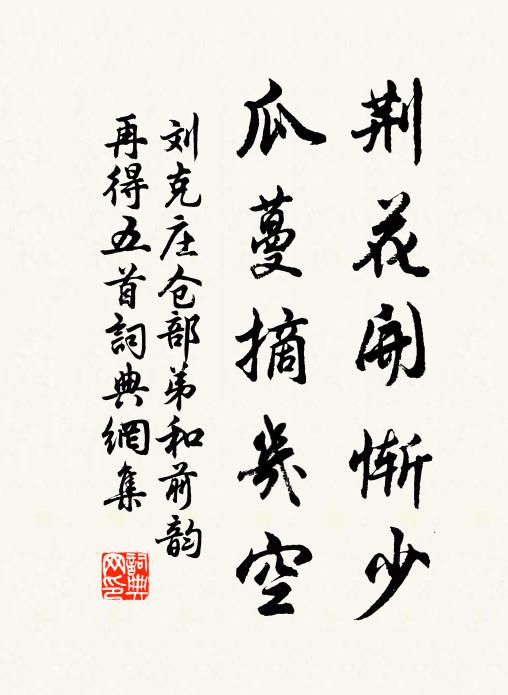 荆花開惭少
瓜蔓摘幾空
刘克庄仓部弟和前韵
再得五首詞典網集
詞典
网印